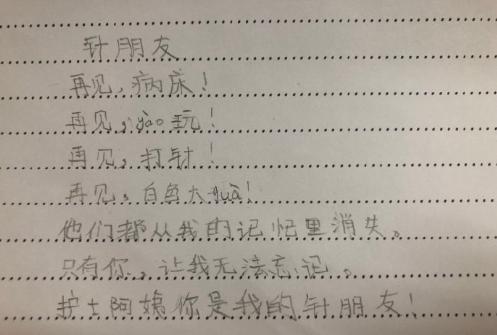 针朋友
再见，病床！
再见，yào玩！
再见，打针！
再见，白色大guà！
他们都从我的记忆里消失。
只有你，让我无法忘记。
护士阿姨你是我的针朋友！